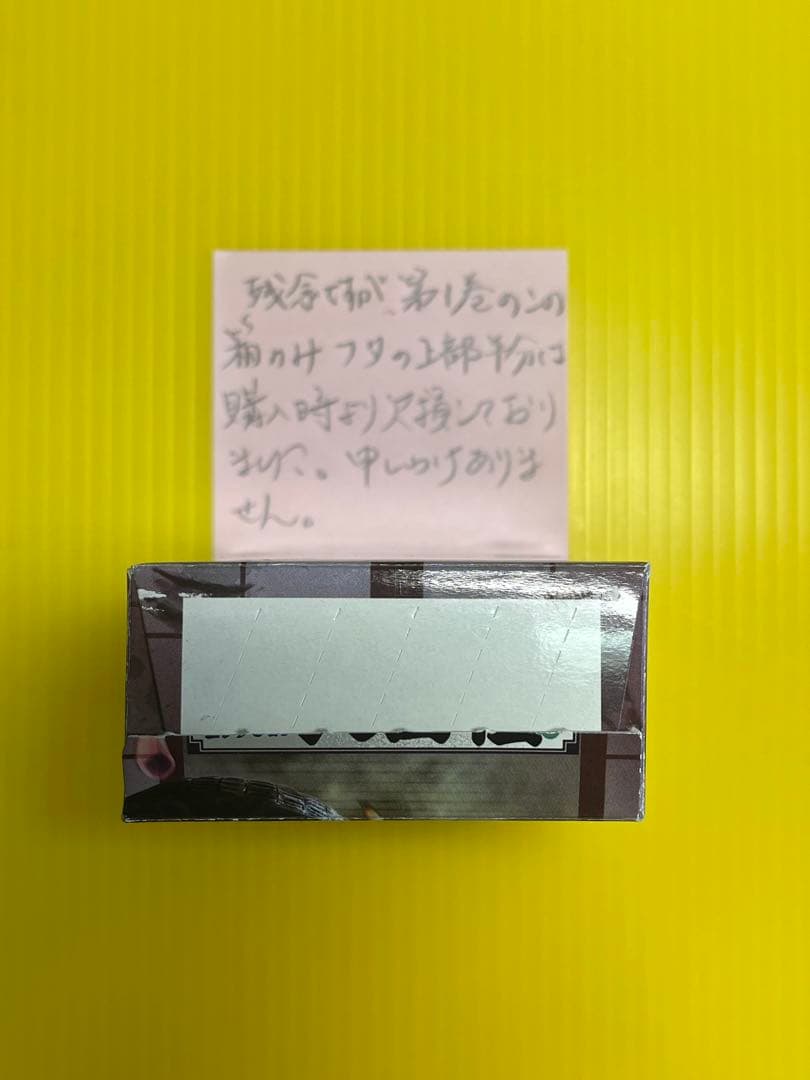 残念ですが、第1巻のこの
箱のみフタの上部半分は
購入時より欠損しており
ました。申しわけありま
せん。